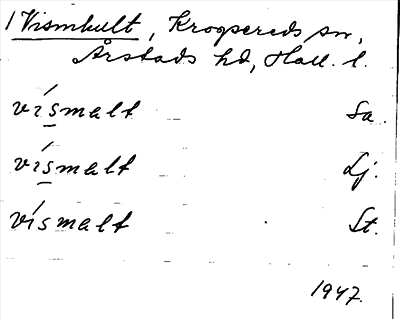 1 Vismhult, Krogsereds sn,
Årstads hd, Hall. l.
vísmalt Sa.
vísmalt Lj.
vísmalt St.
1947.